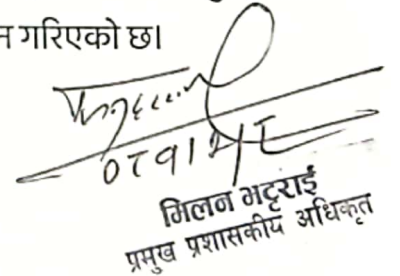 गरिएको छ।
मिलन भट्टराई
प्रमुख प्रशासकीय अधिकृत